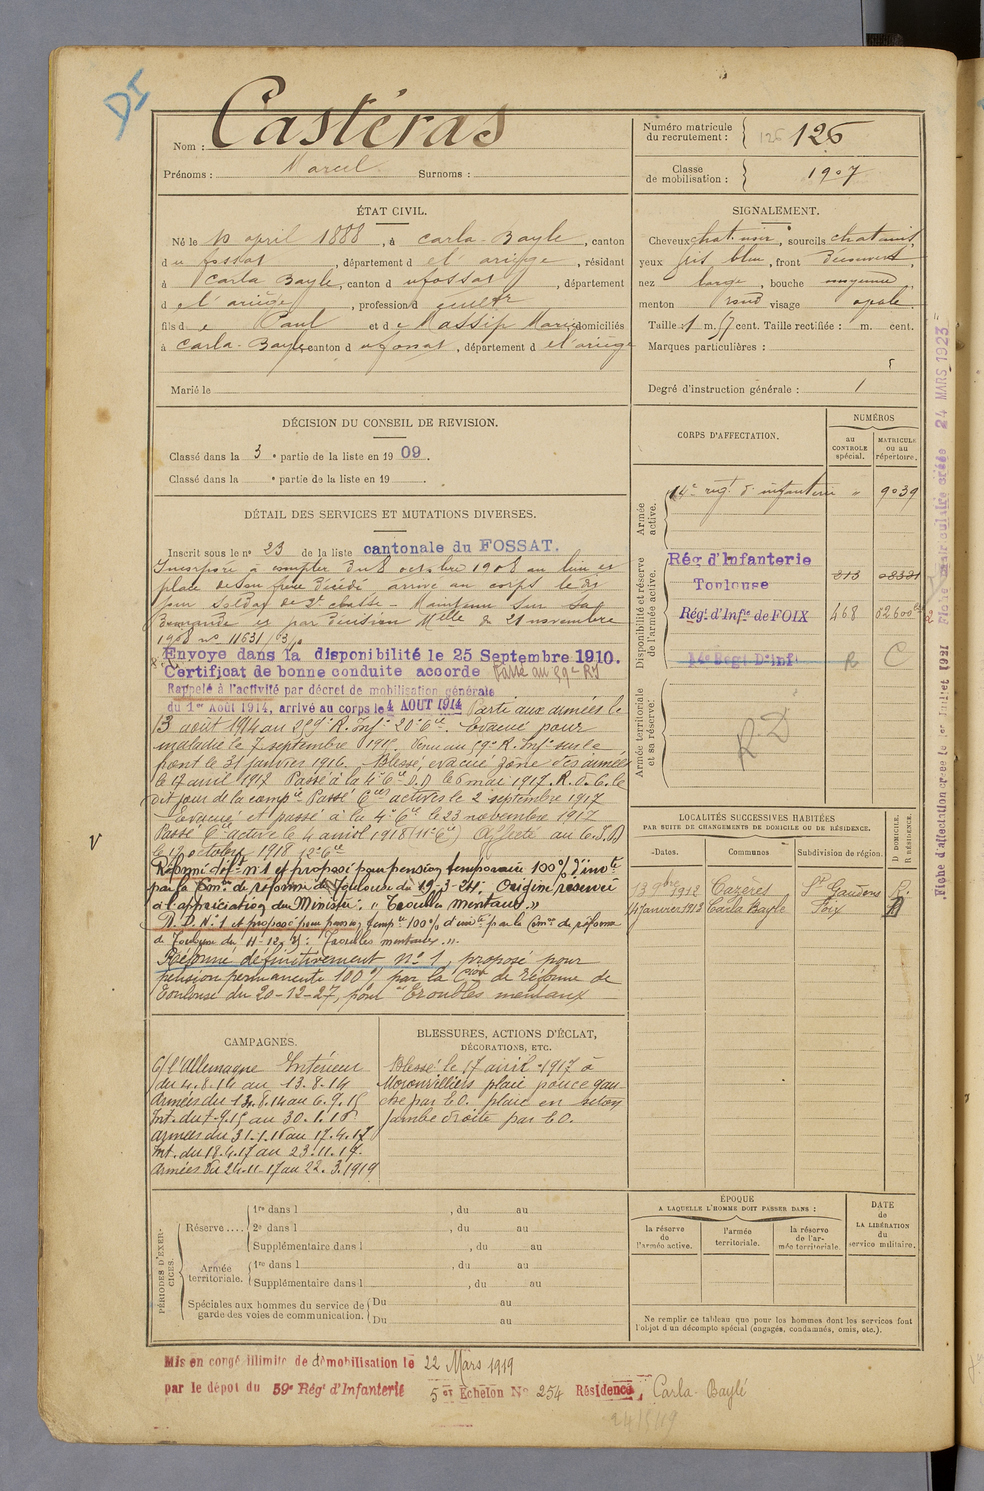 DI
Nom : Castéras
Prénoms : Marcel Surnoms :
Numéro matricule du recrutement : 126 126
Classe de mobilisation : 1907
ÉTAT CIVIL.
Né le 10 april 1888, à Carla-Bayle, canton
du fossat, département de l'ariège, résidant
à Carla Bayle, canton du fossat, département
de l'ariège, profession d cultr
fils de Paul et de Massip Marie domiciliés
à Carla-Bayle, canton du fossat, département de l'ariège
Marié le
SIGNALEMENT.
Cheveux chat. noir, sourcils chatains
yeux gris bleu, front découvert,
nez large, bouche moyenne
menton rond visage ovale
Taille : 1 m. 57 cent. Taille rectifiée : m. cent.
Marques particulières :
Degré d'instruction générale : 1
DÉCISION DU CONSEIL DE REVISION.
Classé dans la 3e partie de la liste en 1909.
Classé dans la e partie de la liste en 19
DÉTAIL DES SERVICES ET MUTATIONS DIVERSES.
Inscrit sous le no 23 de la liste cantonale du FOSSAT.
Incorporé à compter du 8 octobre 1908 au lieu et
place de son frère décédé arrivé au corps le dit
jour soldat de 2e classe - Maintenu sur sa
demande et par décision Mlle du 21 novembre
1908 no 11631/3/
Envoyé dans la disponibilité le 25 Septembre 1910.
Certificat de bonne conduite accordé Passé au 59e RI
Rappelé à l'activité par décret de mobilisation générale
du 1er Août 1914, arrivé au corps le 4 AOUT 1914 Parti aux armées le
13 août 1914 au 259e R. Infie 20e Cie. Evacué pour
maladie le 7 septembre 1915. Venu au 59e R. Infie sur le
front le 31 janvier 1916. Blessé, évacué zone des armées
le 17 avril 1917 Passé à la 4e Cie D.D le 6 mai 1917. R.d.C. le
dit jour de la compie Passé Cies actives le 2 septembre 1917
Evacué et passé à la 4e Cie le 23 novembre 1917
Passé Cie active le 4 avril 1918 (11e Cie) Affecté au C.I.D
le 12 octobre 1918 12e Cie
Réformé déf no 1 et proposé pour pension temporaire 100% d'invté
par la Com. de réforme de Toulouse du 19-3-24. Origine réservée
à l'appréciation du Ministre. "Troubles mentaux."
R.D.N.o 1 et proposé pour pension tempre 100% d'invté par la Com. de réforme
de Toulouse du "Troubles mentaux".
Réformé définitivement no 1, proposé pour
pension permanente 100%, par la Con de réforme de
Toulouse du 20-12-27, pour "Troubles mentaux
CORPS D'AFFECTATION.
NUMÉROS
au CONTROLE spécial.
MATRICULE ou au répertoire.
Armée active.
14e régt d'infanterie " 9039
Disponibilité et réserve de l'armée active.
Rég. d'Infanterie
Toulouse 313 08321
Régt d'Infie de FOIX 468 02600 bis 2
14e Régt D'inf R C
Armée territoriale et sa réserve.
RD
LOCALITÉS SUCCESSIVES HABITÉES
PAR SUITE DE CHANGEMENTS DE DOMICILE OU DE RÉSIDENCE.
Dates. Communes Subdivision de région. D DOMICILE. R RÉSIDENCE.
13 9bre 1912 Cazères St Gaudens R
14 janvier 1913 Carla Bayle Foix D
V
CAMPAGNES.
C/ l'Allemagne Intérieur
du 4.8.14 au 13.8.14
Armées du 13.8.14 au 6.9.15
Int. du 7.9.15 au 30.1.16
Armées du 31.1.16 au 17.4.17
Int. du 18.4.17 au 23.11.17.
Armées du 24.11.17 au 22.3.1919
BLESSURES, ACTIONS D'ÉCLAT,
DÉCORATIONS, ETC.
Blessé le 17 avril 1917 à
Moronvilliers plaie pouce gau-
che par EO. plaie en séton
jambe droite par EO.
PÉRIODES D'EXERCICES.
Réserve....
1re dans l , du au
2e dans l , du au
Supplémentaire dans l , du au
Armée territoriale.
1re dans l , du au
Supplémentaire dans l , du au
Spéciales aux hommes du service de garde des voies de communication.
Du au
Du au
ÉPOQUE
A LAQUELLE L'HOMME DOIT PASSER DANS :
la réserve de l'armée active.
l'armée territoriale.
la réserve de l'armée territoriale.
DATE de LA LIBÉRATION du service militaire.
Ne remplir ce tableau que pour les hommes dont les services font
l'objet d'un décompte spécial (engagés, condamnés, omis, etc.).
Mis en congé illimité de démobilisation le 22 Mars 1919
par le dépot du 59e Régt d'Infanterie 5e Echelon No 254 Résidence, Carla-Baylé
Fiche d'affectation créée le 1er Juillet 1921
Fiche matriculaire créée 24 MARS 1923